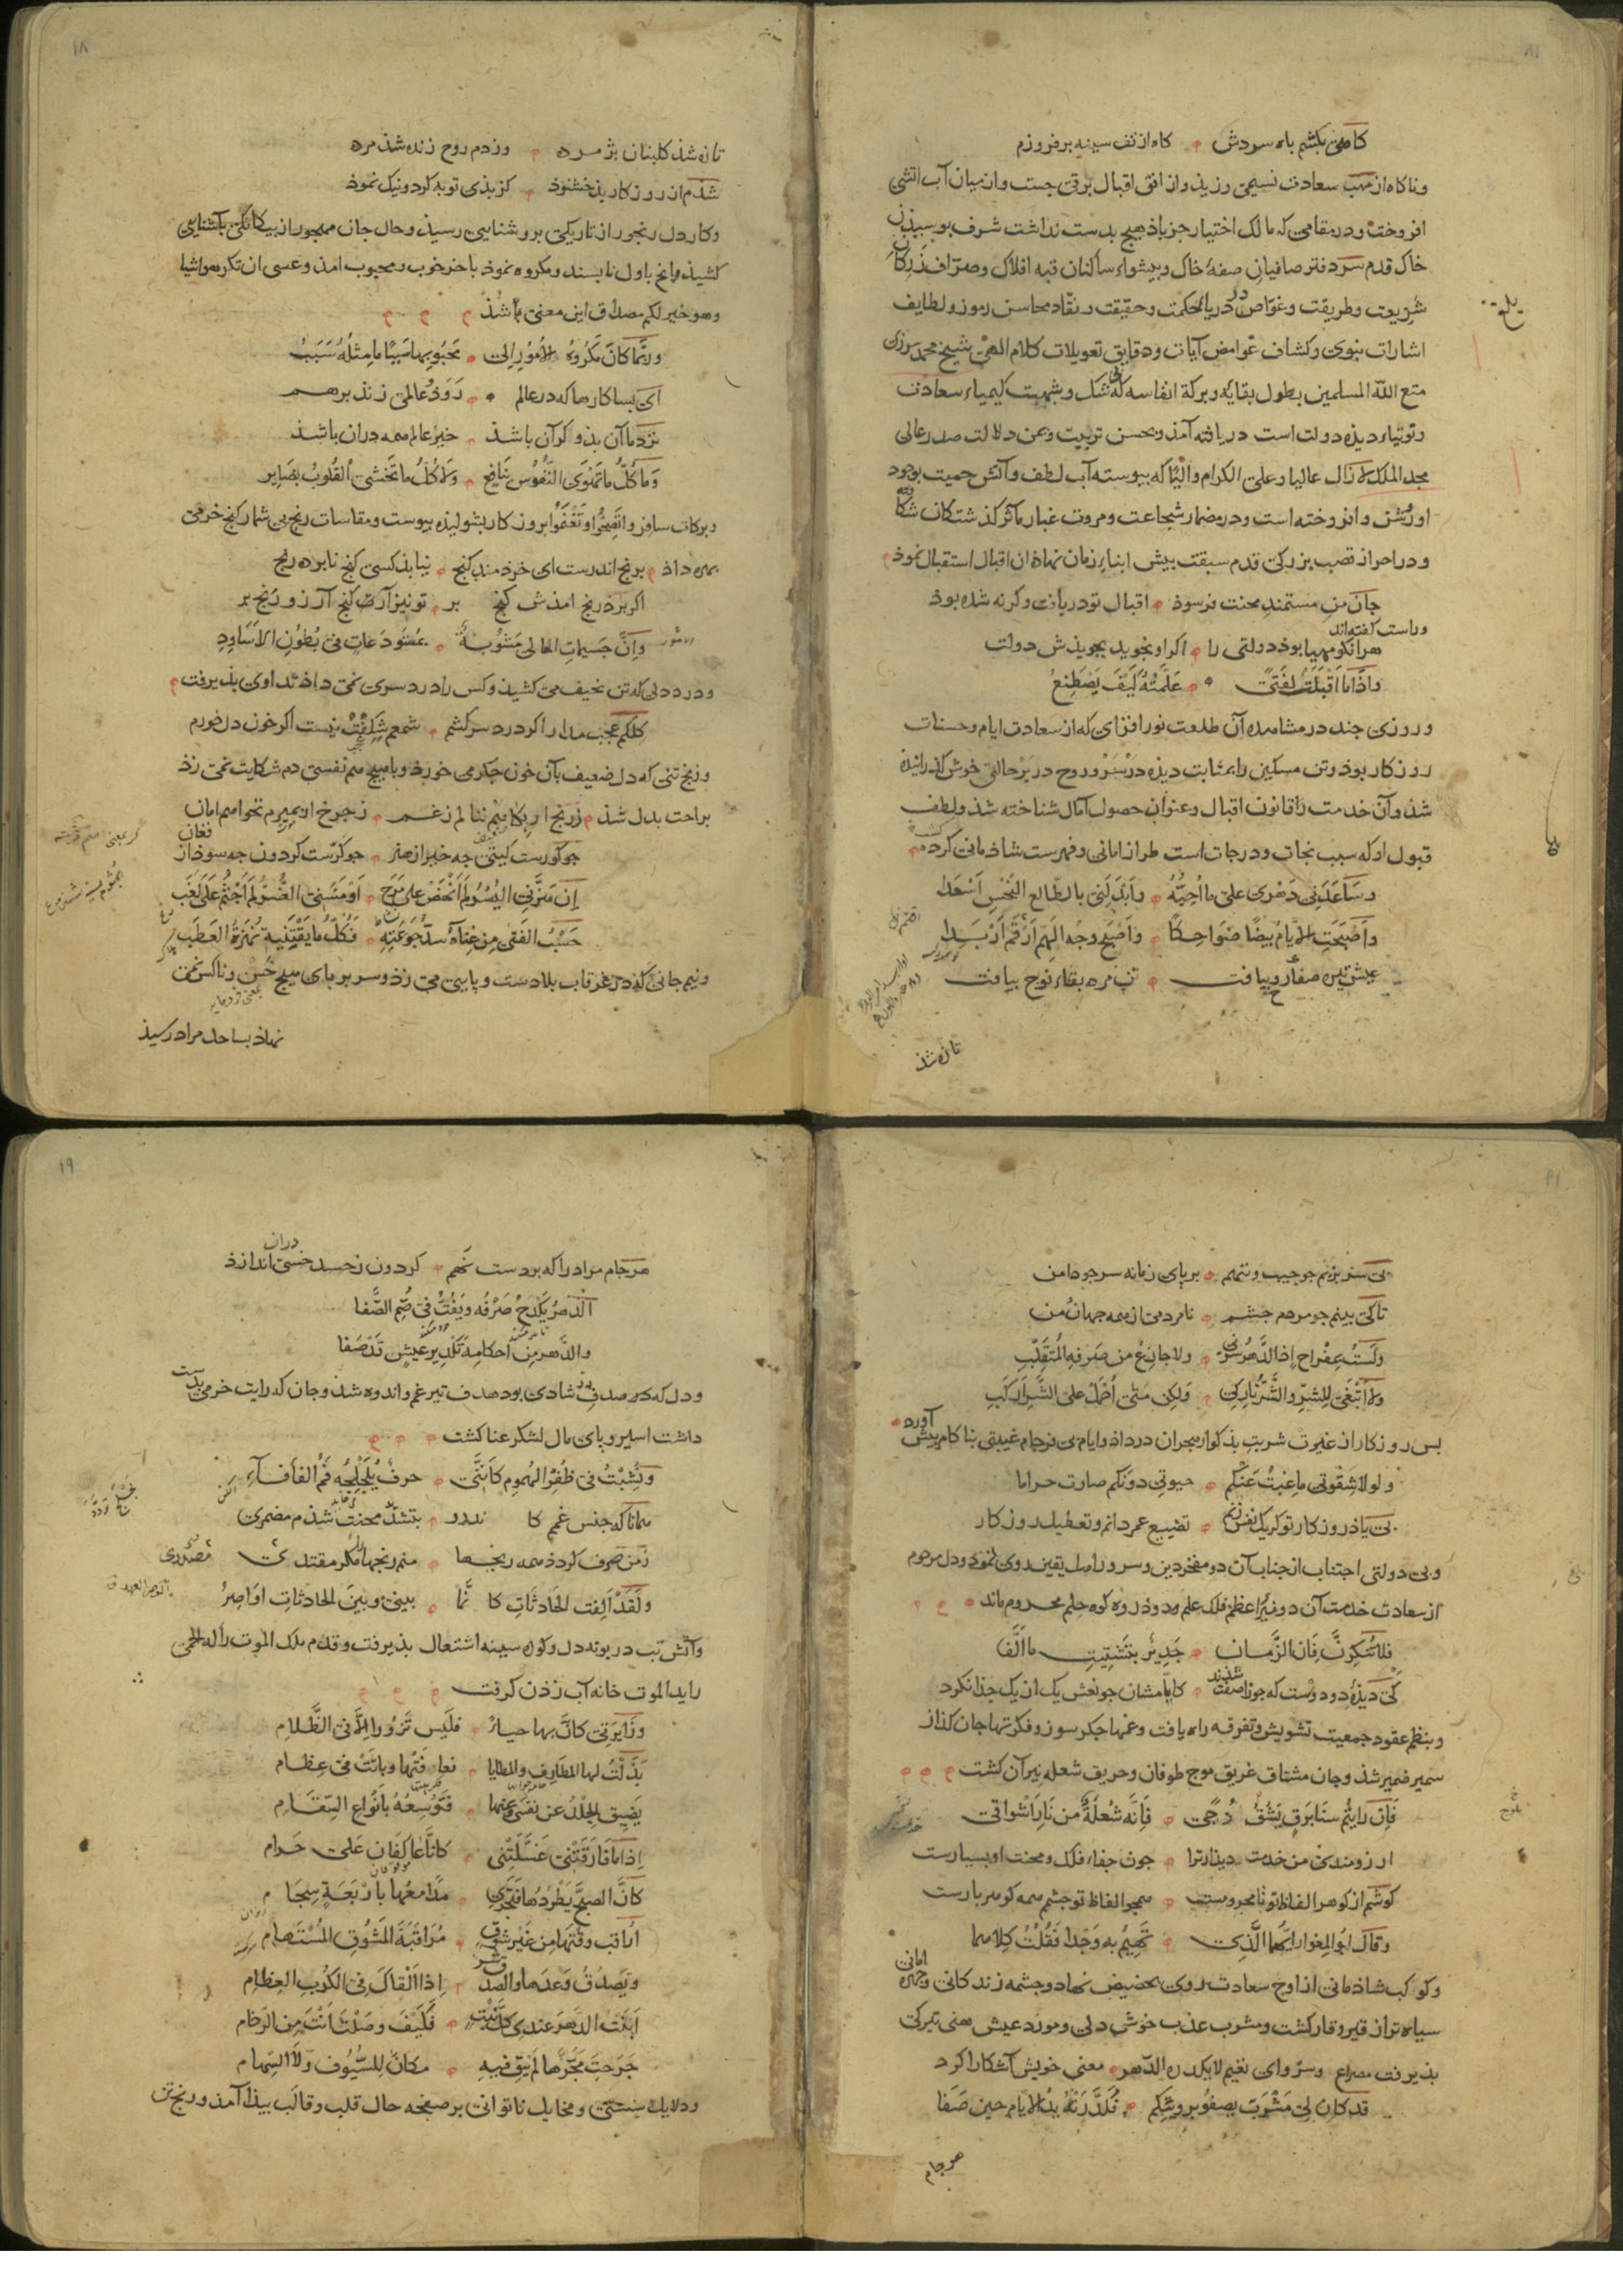 کاهی بکشم باه سردش کاه از تف سینه برفروزم
وناکاه از مهب سعادت نسیمی رزیذ واز افق اقبال برقی جست واز میان آب اتشی
افروخت ودر مقامی که مالک اختیار جز باذ هیچ بدست نداشت شرف بوسیذن
خاک قدم سر دفتر صافیان صفهٔ خاک وبیشواء ساکنان قبه افلاک وصرّاف
شریعت وطریقت وغوّاص دریاء حکمت وحقیقت ونقّاد محاسن رموز ولطایف
اشارات نبوی وکشاف غوامض آیات ودقایق تعویلات کلام الهی شیخ محمد
متع اللّه المسلمین بطول بقایه وبرکة انفاسه که شک وشبهت کیمیاء سعادت
وتوتیاء دیذه دولت است دریافته آمذ وبحسن تربیت ویمن دلالت صدر عالی
مجد الملک لا زال عالیا وعلی الکرام والیًا که بیوسته آب لطف وآتش حمیت بوجود
او روشن وافروخته است ودر مضمار شجاعت ومروت غبار مآثر کذشتکان شکافته
ودر احراز قصب بزرکی قدم سبقت بیش ابناء زمان نهاذ ان اقبال استقبال نموذ
جان من مستمند محنت فرسوذ اقبال تو دریافت وکرنه شذه بوذ
وراست کفته اند
هر انکو مهیا بوذ دولتی را اکر او نجوید بجویذش دولت
واذا ما اقبلت لفتیً علّمته کیف یصطنع
وروزی جند در مشاهده آن طلعت نور افزای که از سعادت ایام وحسنات
روزکار بوذ وتن مسکین رابمثابت دیذه در سر وروح در بر حالتی خوش کذرانیذه
شذ وآن خدمت را قانون اقبال وعنوان حصول آمال شناخته شذ ولطف
قبول او که سبب نجات ودرجات است طراز امانی وفهرست شاذمانی کرده
وساعدنی دهری علی ما احبّه وابدلنی بالطالع النحس اسعدا
واصبحت الایام بیضًا ضواحکًا واصبح وجه الهم ارقم اربدا
عیش تیره صفاء روح بیافت تن مرده بقاء نوح بیافت
تازه شذ
۱۸
تازه شذ کلبنان بژمرده وزدم روح زنده شذ مرده
شذم از روزکار بذ خشنوذ کز بذی توبه کرد ونیک نموذ
وکار دل رنجور از تاریکی بروشنایی رسیذ وحال جان مهجور از بیکانکی باشنایی
کشیذ وانج باول نابسند ومکروه نموذ باخر خوب ومحبوب امذ وعسی ان تکرهوا شیا
وهو خیر لکم مصداق این معنی باشذ
وربّما کان مکروه الامور الی محبوبها سببًا ما مثله سبب
ای بسا کارها که در عالم رَوَذ وعالمی زنذ برهم
نزد ما آن بذ وکر آن باشذ خیر عالم همه دران باشذ
وما کلّ ما تهوی النّفوس بنافع ولا کلّ ما تخشی القلوب بضایر
وبرکات سافروا تصحّوا وتغنموا بروزکار بشولیذه بیوست ومقاسات رنج بی شمار کنج خرمی
بمره داذ برنج اندرست ای خردمند کنج نیابذ کسی کنج نابرده رنج
اکر بر ذ رنج امذش کنج بر تو نیز آرت کنج آرزو رنج بر
وانّ جسیمات المعالی مشوبة بمستودعات فی بطون الاساود
ودرد دلی که تن نحیف می کشیذ وکس را درد سری نمی داذ تداوی بذیرفت
کلکم عجب مدار اکر درد سر کشم شمعم شکفت نیست اکر خون دل خورم
ورنج تنی که دل ضعیف بآن خون جکر می خورذ وبا هیچ هم نفسی دم شکایت نمی زذ
براحت بدل شذ زرنج ار بکاهم ننالم زغم زجرخ ار بمیرم نخواهم امان
جو کورست کیتی جه خیر از هنر جو کرّست کردون جه سوذ از فغان
ان مسّنی الیسر لم انهض علی مرح او مسّنی الضّر لم اجثم علی لغب
حسب الفتی من غناه سدّ جوعته فکلّ ما یقتنیه نهزة العطب
ونیم جانی که در غرقاب بلا دست وپایی می زذ وسر بر بای هیچ خس وناکس نمی
نهاذ بساحل مراد رسیذ
بی سر بزیم جو جیب وننهم بر پای زمانه سر جو دامن
تا کی بدیم جو مردم جشم نامردمی از همه جهان من
ولست بمفراح اذا الدّهر سرّنی ولا جازع من صرفه المتقلّب
ولا ابتغی للشّرّ والشّرّ تارکی ولکن متی احمل علی الشّر ارکب
بس روزکار از غیرت شربت بذکوار هجران درداذ وایام بی فرجام غیبتی بناکام بیش آورد
ولولا شقوتی ما غبت عنکم حیوتی دونکم صارت حراما
بی یاذ روزکار تو کر یک نفس زنم تضییع عمر دانم وتعطیل روزکار
وبی دولتی اجتناب از جناب آن دو مفخر دین وسرور اهل یقین روی نموذ ودل مرحوم
از سعادت خدمت آن دو نیّر اعظم فلک علم ودو ذروه کوه حلم محروم ماند
فلا تنکرن فان الزمان جدیر بتشتیت ما الّفا
کی دیذهٔ دو دوست که جوزا صفت شذند کایّامشان جو نعش یک از یک جذا نکرد
وبنظم عقود جمعیت تشویش وتفرقه راه یافت وغمها جکر سوز وفکرتها جان کذاز
سمیر ضمیر شذ وجان مشتاق غریق موج طوفان وحریق شعله نیران کشت
فان رایتم سنا برق یشقّ دجی فانّه شعلة من نار اشواقی
ارزومندی من خدمت دیذار ترا جون جفاء فلک ومحنت او بسیارست
کوشم از کوهر الفاظ تو تا محرومست همجو الفاظ تو جشمم همه کوهر بارست
وقال ابو المغوار ایّهما الّذی تهیم به وجدا فقلت کلاهما
وکوکب شاذمانی از اوج سعادت روی بحضیض نهاد وجشمه زندکانی وجهره امانی
سیاه تر از قیر وقار کشت ومشرب عذب خوش دلی ومورد عیش هنی تیرکی
بذیرفت مصراع وسرّ وای نعیم لا یکدره الدّهر معنی خویش آشکارا کرد
قد کان لی مشرب یصفو برویتکم فکدّرته ید الایّام حین صفا
هر جام
۱۹
هر جام مراد را که بر دست نهم کردون زحسد خسی دران اندازذ
الدهر یکدح صرفه ویفتّ فی صمّ الصّفا
والدّهر من احکامه تکدیر عیش قد صفا
ودل که در صدف شاذی بود هدف تیر غم واندوه شذ وجان که رایت خرمی بدست
داشت اسیر وپای مال لشکر عنا کشت
ونشبت فی ظفر الهموم کانّنی حرف یلجلجه فم الفأفاء
زمن صرف کرد ذ همه رنجها منم رنجها را مکر مقتدی
ولقد الفت الحادثات کانّما بینی وبین الحادثات اواصر
وآتش تب در بوته دل وکوره سینه اشتعال بذیرفت وقدم ملک الموت را که الحمی
راید الموت خانه آب زذن کرفت
وزایرتی کانّ بها حیاء فلیس تزور الّا فی الظّلام
بذلت لها المطارف والحشایا فعافتها وباتت فی عظامی
یضیق الجلد عن نفسی وعنها فتوسعه بانواع السّقام
اذا ما فارقتنی غسّلتنی کانّا عاکفان علی حرام
کانّ الصبح یطردها فتجری مدامعها باربعة سجام
اراقب وقتها من غیر شوق مراقبة المشوق المستهام
ویصدق وعدها والصدق شرّ اذا القاک فی الکرب العظام
ابنت الدهر عندی کلّ بنت فکیف وصلت انت من الزحام
جرحت مجرّحا لم یبق فیه مکان للسّیوف ولا السّهام
ودلایل سستی ومخایل ناتوانی بر صفحه حال قلب وقالب بیذا آمذ ورنج تن